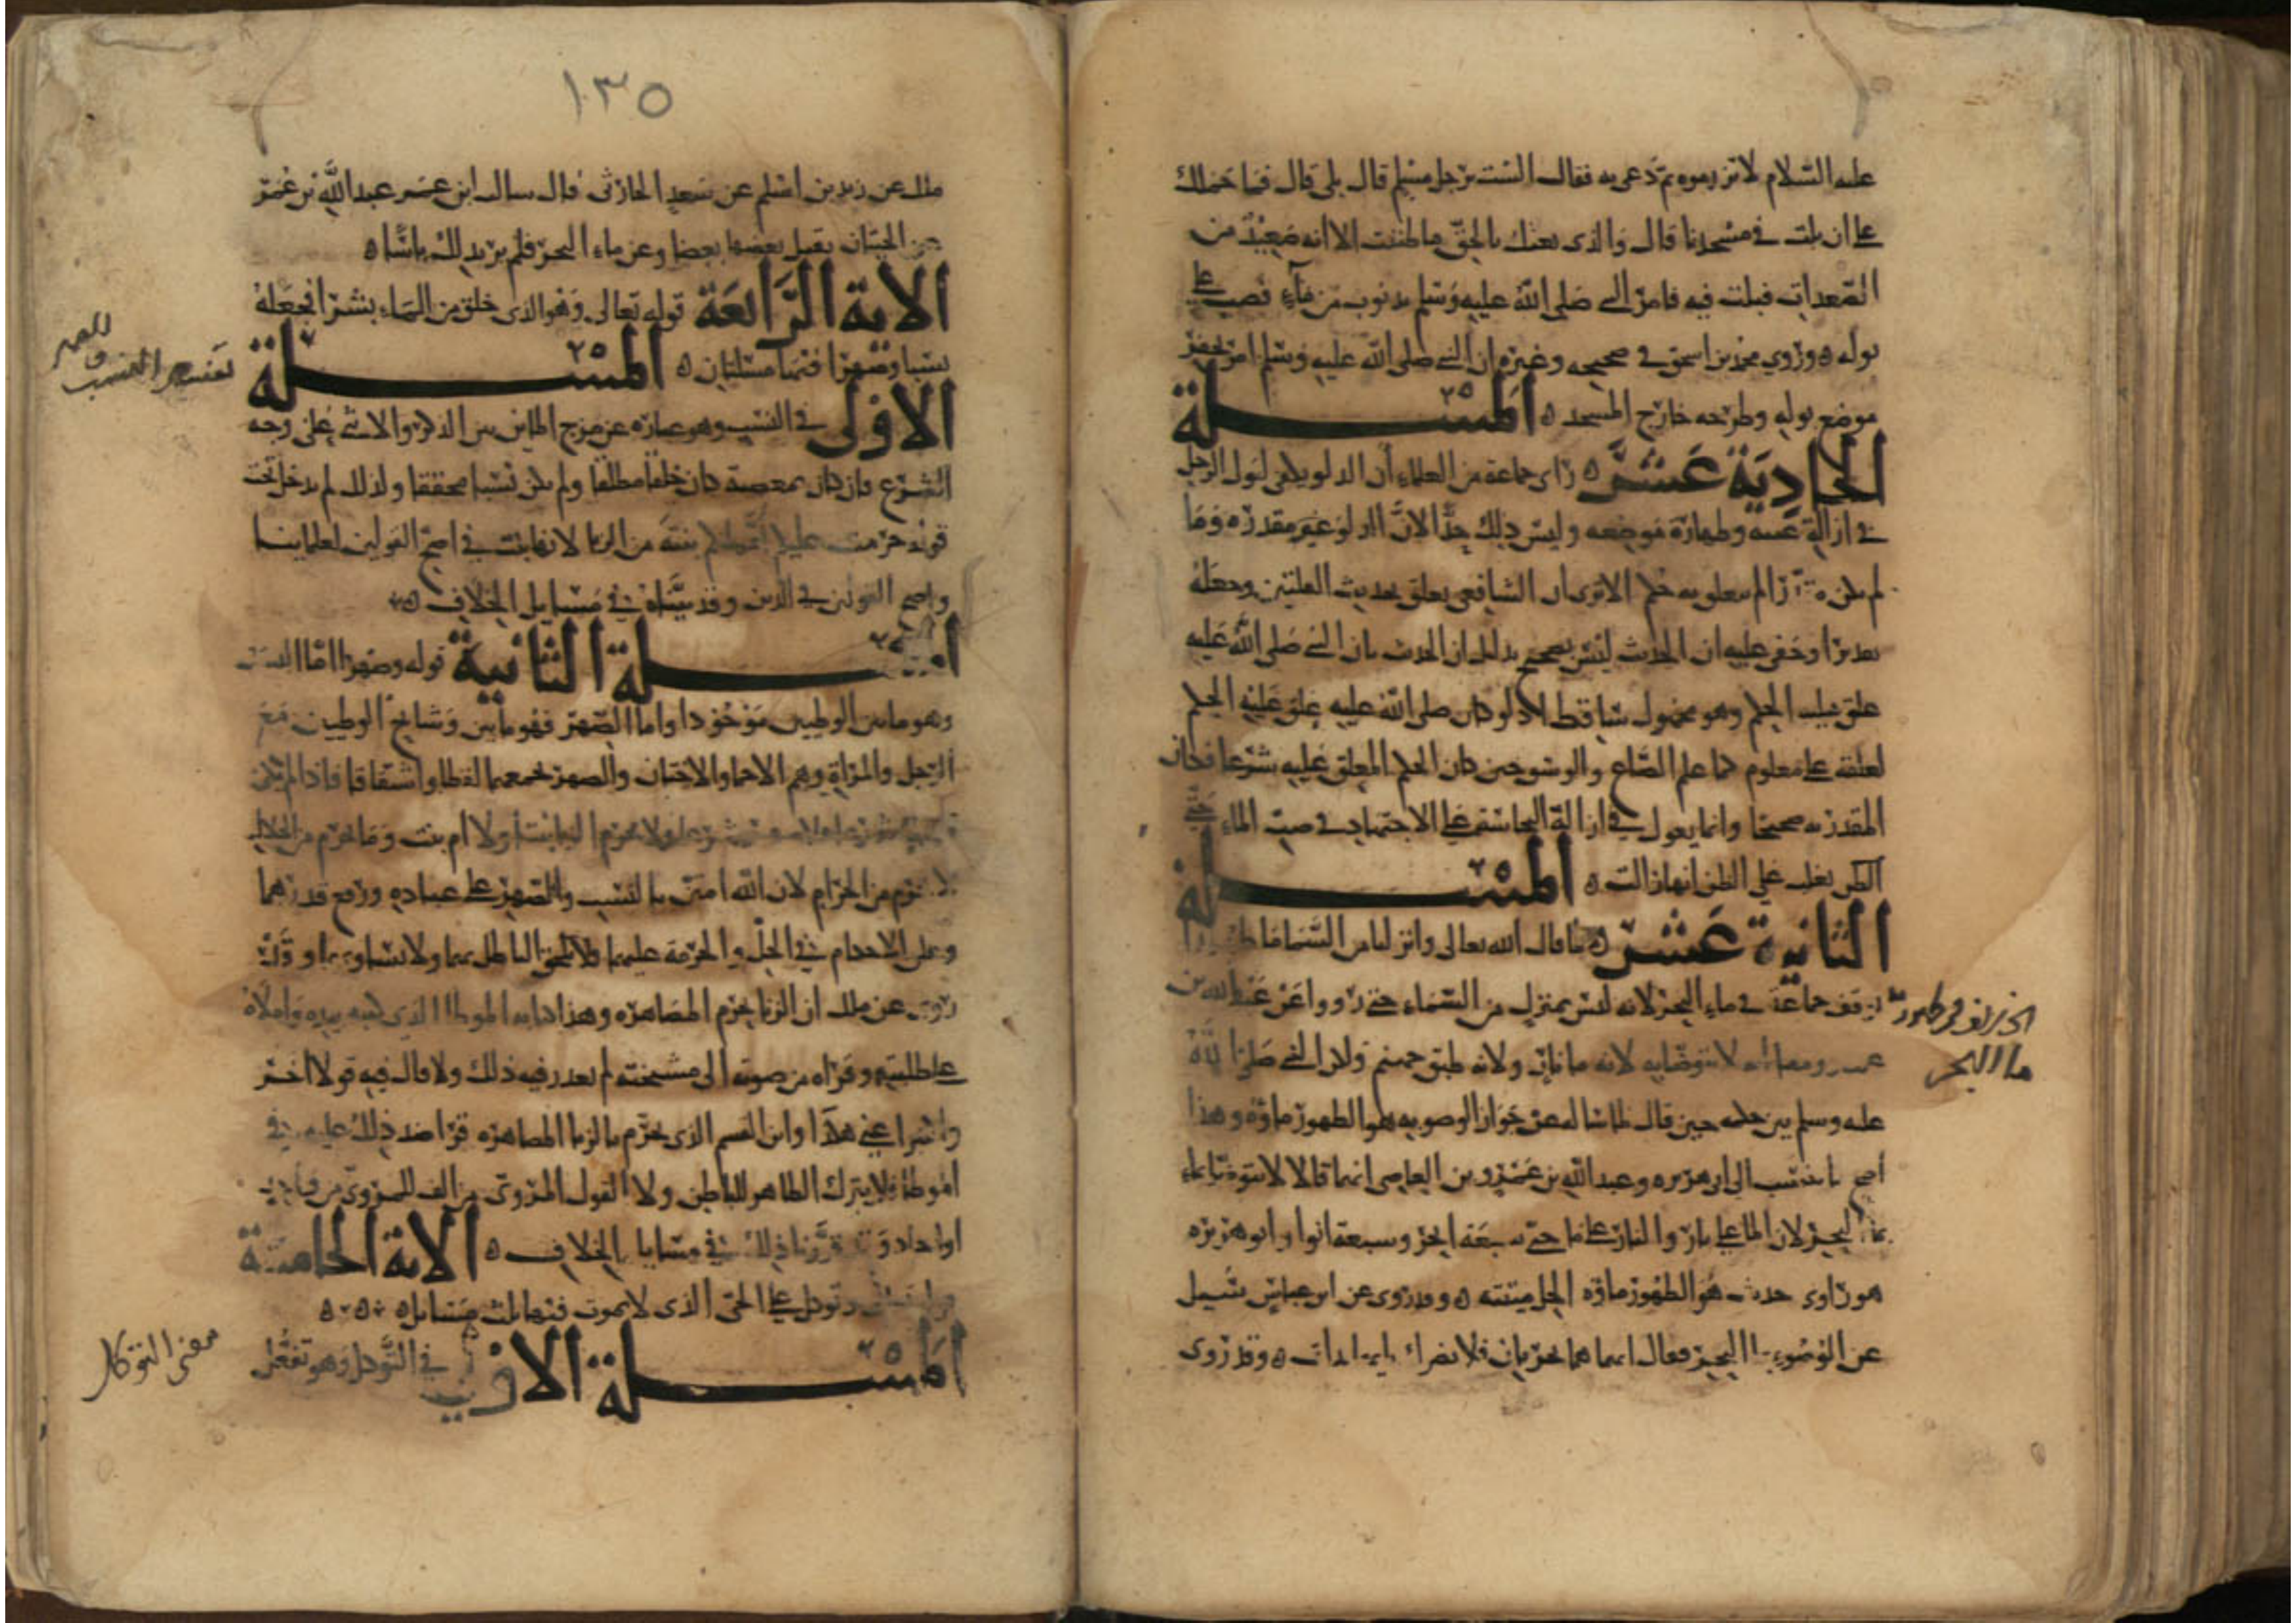 عليه السلام لا تزرموه ثم دعى به فقال ألست برجل مسلم قال بلى قال فما حملك
على ان بلت في مسجدنا قال والذي بعثك بالحق ما ظننت الا انه صعيد من
الصعدات فبلت فيه فامر النبي صلى الله عليه وسلم بذنوب من ماء فصب على
بوله وروي محمد بن اسحق في صحيحه وغيره ان النبي صلى الله عليه وسلم امر بحفر
موضع بوله وطرحه خارج المسجد المسئلة
الحادية عشر راى جماعة من العلماء أن الدلو يكفى لبول الرجل
في ازالة عينه وطهارة موضعه وليس ذلك حدا لان الدلو غير مقدرة وما
لم يكن لم يتعلق به حكم الا ترى ان الشافعي تعلق بحديث القلتين وجعله
تقديرا وخفى عليه ان الحديث ليس بصحيح بدليل ان الحديث بان النبي صلى الله عليه
علق عليه الحكم وهو مجهول ساقط اذ لو كان صلى الله عليه علق عليه الحكم
لعلقه على معلوم كما علم الصاع والوسق حين كان الحكم المعلق عليه شرعا فكان
المقدر به صحيحا وانما يعول في ازالة النجاسة على الاجتهاد في صب الماء حتى
يغلب على الظن انها زالت المسئلة
الثانية عشر لما قال الله تعالى وانزلنا من السماء ماء طهورا
توقف جماعة في ماء البحر لانه ليس بمنزل من السماء حتى رووا عن عبد الله بن
عمر لا يتوضا به لانه ماء نار ولانه طبق جهنم ولكن النبي صلى الله
عليه وسلم بين حكمه حين قال لما ساله عن جواز الوضو به هو الطهور ماؤه وهذا
اصح ما ينسب الى ابي هريره وعبد الله بن عمرو بن العاصي انهما قالا لا يتوضا بماء
البحر لان الماء على نار والنار على ماء حتى سبعة ابحر وسبعة انوار وابو هريره
هو راوي حديث هو الطهور ماؤه الحل ميتته وقد روى عن ابن عباس سئل
عن الوضوء بماء البحر فقال انما هما بحران فلا يضرك بايهما بدات وقد روى
ماء البحر
١٣٥
ملك عن زيد بن اسلم عن سعد الحارثي قال سال ابن عمر عبد الله بن عمر
عن الحيتان يقتل بعضها بعضا وعن ماء البحر فلم ير بذلك باسا
الاية الرابعة قوله تعالى وهو الذي خلق من الماء بشرا فجعله
نسبا وصهرا فيها مسئلتان المسئلة
الاولى في النسب وهو عبارة عن مزج الماء بين الذكر والانثى على وجه
الشرع فان كان بمعصية كان خلقا مطلقا ولم يكن نسبا محققا ولذلك لم يدخل تحت
قوله حرمت عليكم امهاتكم بنته من الزنا لانها بنت في اصح القولين لعلماينا
واصح القولين في الدين وقد بيناه في مسايل الخلاف
المسئلة الثانية قوله وصهرا اما النسب
وهو ما بين الوطيين موجودا واما الصهر فهو ما بين وشايج الوطيين مع
الرجل والمراة وهم الاحما والاختان والصهر يجمعهما لفظا واشتقاقا فاذا لم يكن
شرعا ولا يحرم الزنا بنت ام ولا ام بنت وما يحرم من الحلال
لا يحرم من الحرام لان الله امتن بالنسب والصهر على عباده ورفع قدرهما
وعلق الاحكام في الحل والحرمة عليهما فلا يلحق الباطل بهما ولا يساويهما وقد
روى عن ملك ان الزنا يحرم المصاهره وهذا كتابه الموطا الذي كتبه بيده واملاه
على طلبته وقراه من صبوته الى مشيخته لم يغير فيه ذلك ولا قال فيه قولا اخر
واكتبوا عني هذا وابن القسم الذي يحرم بالزنا المصاهره قرا ضد ذلك عليه في
الموطا فلا يترك الظاهر للباطن ولا القول المروي من الف للمروي من
احاد وقد قررنا ذلك في مسايل الخلاف الاية الخامسة
قوله تعالى وتوكل على الحي الذي لا يموت فيها ثلث مسايل
المسئلة الاولى في التوكل وهو تفعل
تفسير النسب
والصهر
معنى التوكل